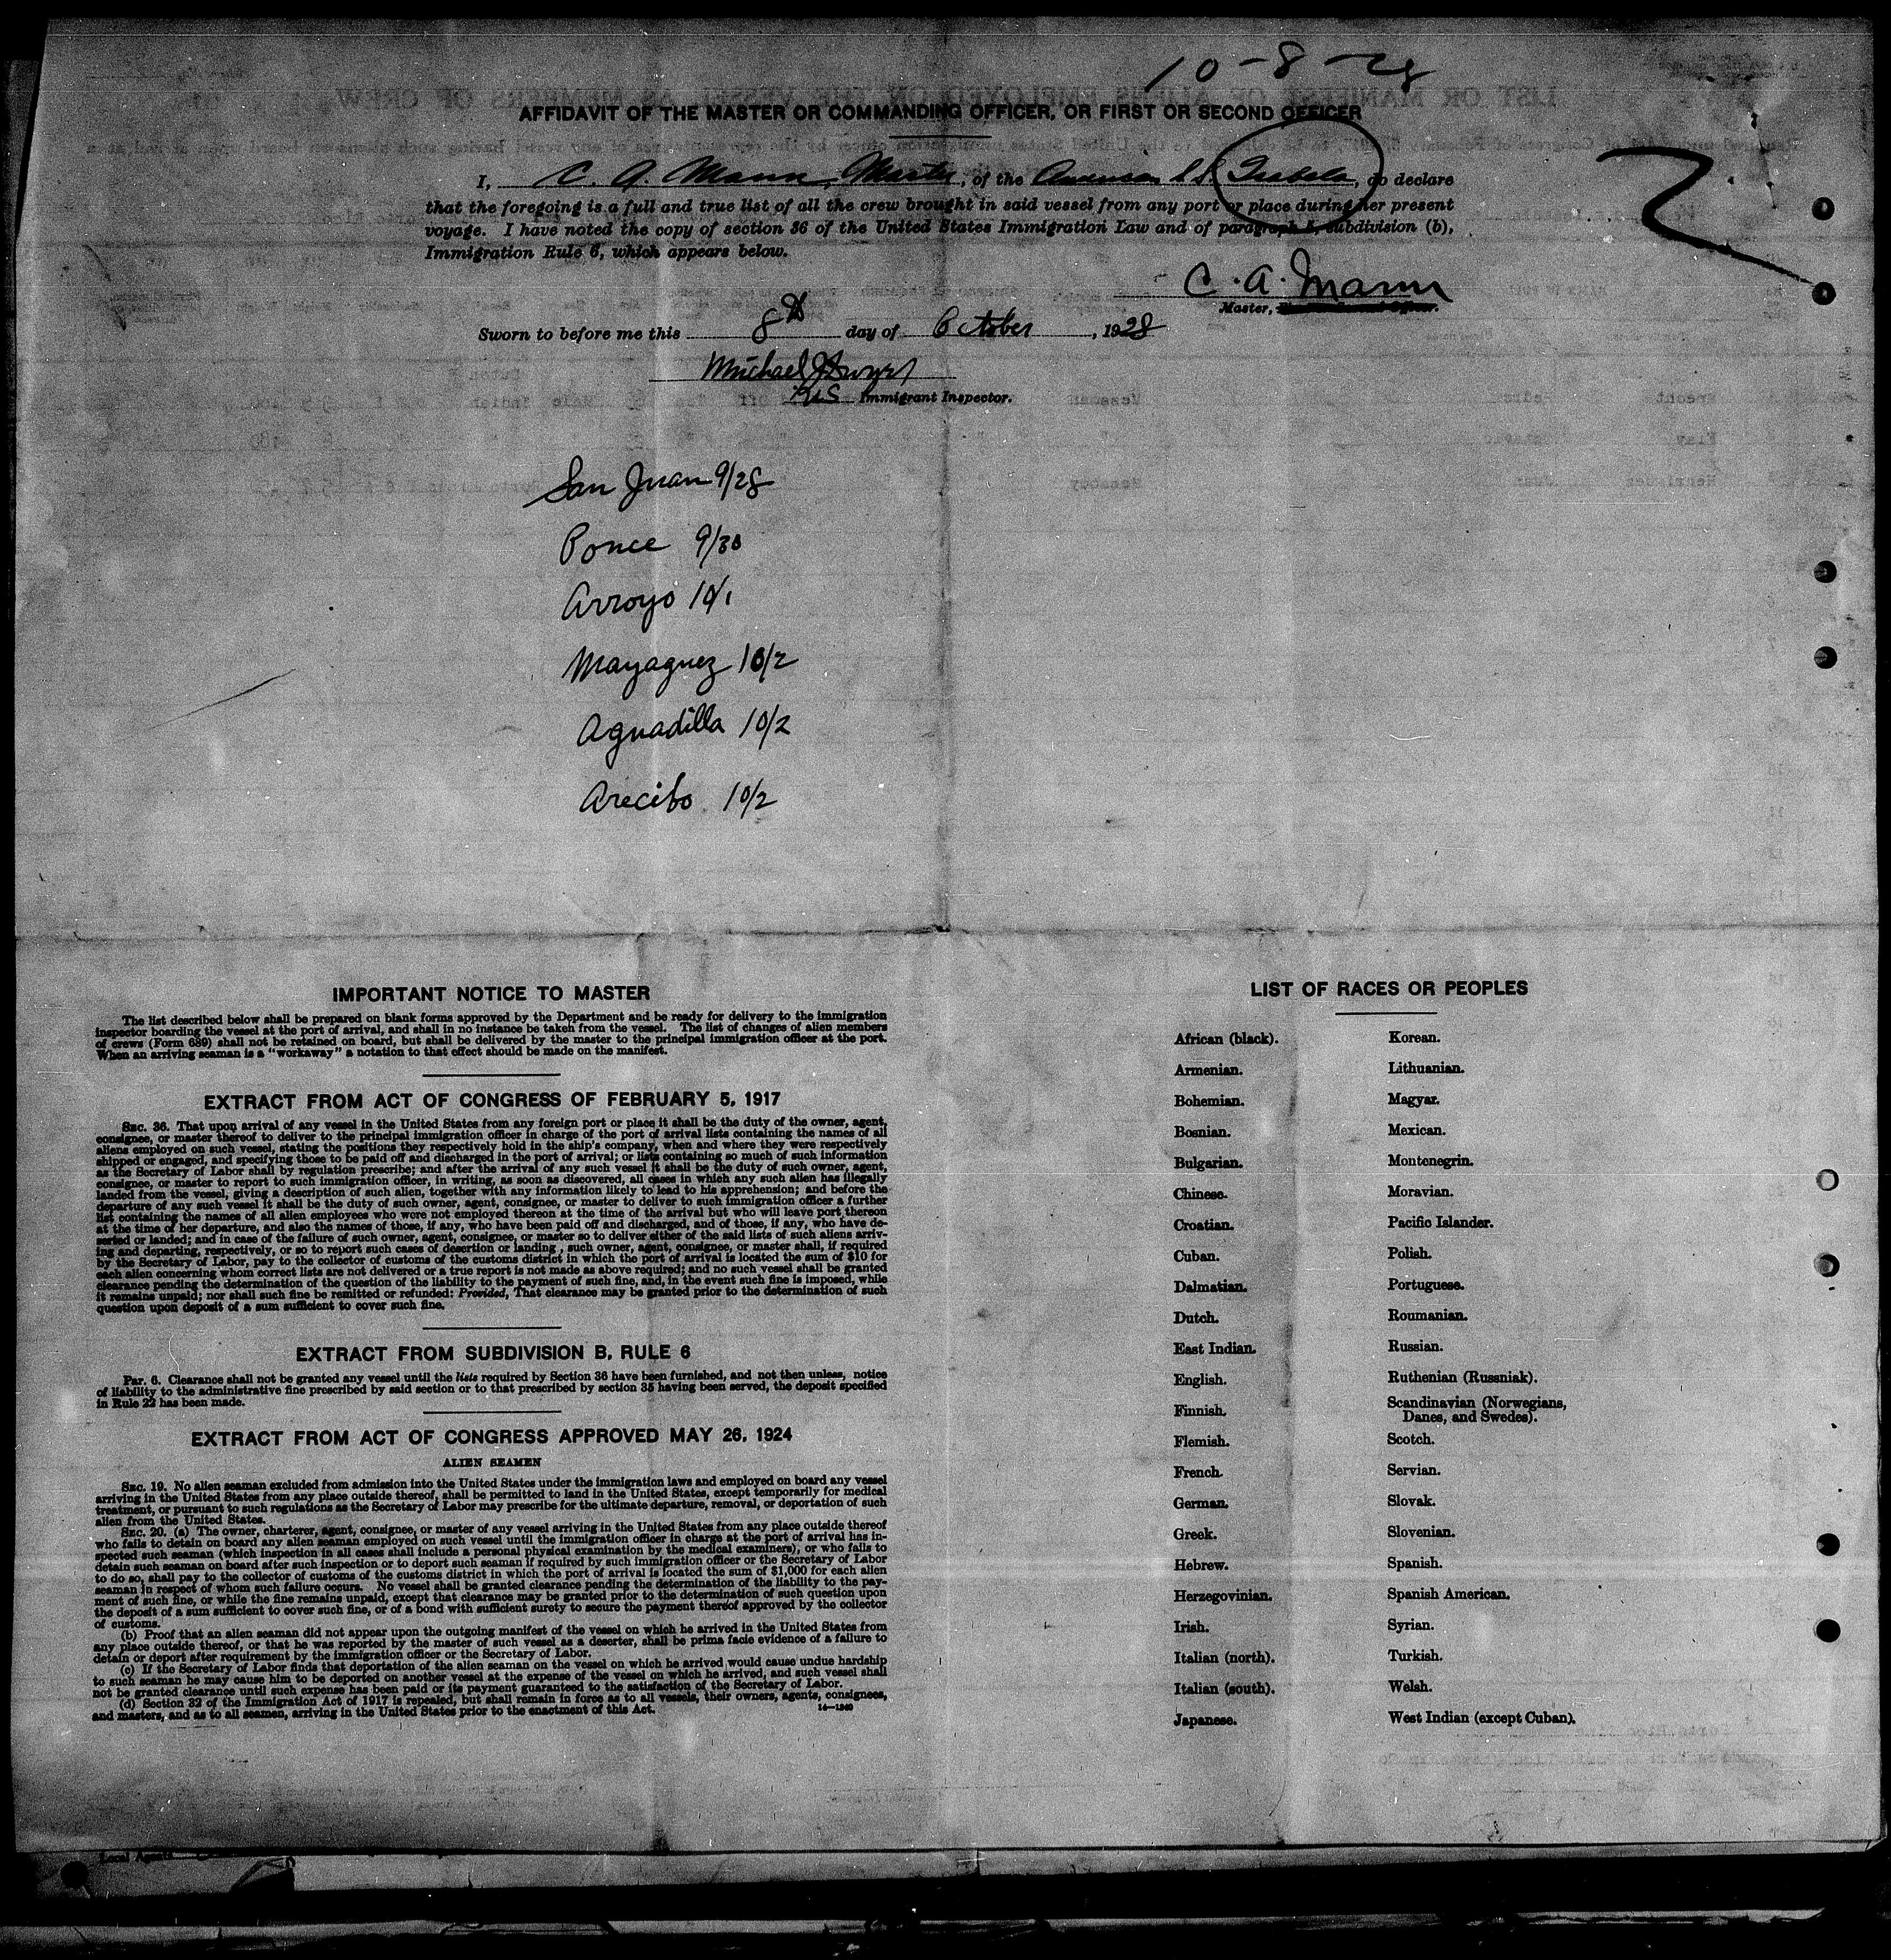 10-8-28
AFFIDAVIT OF THE MASTER OR COMMANDING OFFICER, OR FIRST OR SECOND OFFICER
I, C. A. Mann, Master, of the American S.S. Isabela, do declare
that the foregoing is a full and true list of all the crew brought in said vessel from any port or place during her present
voyage. I have noted the copy of section 36 of the United States Immigration Law and of paragraph 5, subdivision (b),
Immigration Rule 6, which appears below.
C. A. Mann
Master,
Sworn to before me this 8th day of October, 1928
Michael J
Immigrant Inspector.
San Juan 9/28
Ponce 9/30
Arroyo 10/1
Mayaguez 10/2
Aguadilla 10/2
Arecibo 10/2
IMPORTANT NOTICE TO MASTER
The list described below shall be prepared on blank forms approved by the Department and be ready for delivery to the immigration
inspector boarding the vessel at the port of arrival, and shall in no instance be taken from the vessel. The list of changes of alien members
of crews (Form 689) shall not be retained on board, but shall be delivered by the master to the principal immigration officer at the port.
When an arriving seaman is a "workaway" a notation to that effect should be made on the manifest.
EXTRACT FROM ACT OF CONGRESS OF FEBRUARY 5, 1917
SEC. 36. That upon arrival of any vessel in the United States from any foreign port or place it shall be the duty of the owner, agent,
consignee, or master thereof to deliver to the principal immigration officer in charge of the port of arrival lists containing the names of all
aliens employed on such vessel, stating the positions they respectively hold in the ship's company, when and where they were respectively
shipped or engaged, and specifying those to be paid off and discharged in the port of arrival; or lists containing so much of such information
as the Secretary of Labor shall by regulation prescribe; and after the arrival of any such vessel it shall be the duty of such owner, agent,
consignee, or master to report to such immigration officer, in writing, as soon as discovered, all cases in which any such alien has illegally
landed from the vessel, giving a description of such alien, together with any information likely to lead to his apprehension; and before the
departure of any such vessel it shall be the duty of such owner, agent, consignee, or master to deliver to such immigration officer a further
list containing the names of all alien employees who were not employed thereon at the time of the arrival but who will leave port thereon
at the time of her departure, and also the names of those, if any, who have been paid off and discharged, and of those, if any, who have de-
serted or landed; and in case of the failure of such owner, agent, consignee, or master so to deliver either of the said lists of such aliens arriv-
ing and departing, respectively, or so to report such cases of desertion or landing, such owner, agent, consignee, or master shall, if required
by the Secretary of Labor, pay to the collector of customs of the customs district in which the port of arrival is located the sum of $10 for
each alien concerning whom correct lists are not delivered or a true report is not made as above required; and no such vessel shall be granted
clearance pending the determination of the question of the liability to the payment of such fine, and, in the event such fine is imposed, while
it remains unpaid; nor shall such fine be remitted or refunded: Provided, That clearance may be granted prior to the determination of such
question upon deposit of a sum sufficient to cover such fine.
EXTRACT FROM SUBDIVISION B, RULE 6
PAR. 6. Clearance shall not be granted any vessel until the lists required by Section 36 have been furnished, and not then unless, notice
of liability to the administrative fine prescribed by said section or to that prescribed by section 35 having been served, the deposit specified
in Rule 22 has been made.
EXTRACT FROM ACT OF CONGRESS APPROVED MAY 26, 1924
ALIEN SEAMEN
SEC. 19. No alien seaman excluded from admission into the United States under the immigration laws and employed on board any vessel
arriving in the United States from any place outside thereof, shall be permitted to land in the United States, except temporarily for medical
treatment, or pursuant to such regulations as the Secretary of Labor may prescribe for the ultimate departure, removal, or deportation of such
alien from the United States.
SEC. 20. (a) The owner, charterer, agent, consignee, or master of any vessel arriving in the United States from any place outside thereof
who fails to detain on board any alien seaman employed on such vessel until the immigration officer in charge at the port of arrival has in-
spected such seaman (which inspection in all cases shall include a personal physical examination by the medical examiners), or who fails to
detain such seaman on board after such inspection or to deport such seaman if required by such immigration officer or the Secretary of Labor
to do so, shall pay to the collector of customs of the customs district in which the port of arrival is located the sum of $1,000 for each alien
seaman in respect of whom such failure occurs. No vessel shall be granted clearance pending the determination of the liability to the pay-
ment of such fine, or while the fine remains unpaid, except that clearance may be granted prior to the determination of such question upon
the deposit of a sum sufficient to cover such fine, or of a bond with sufficient surety to secure the payment thereof approved by the collector
of customs.
(b) Proof that an alien seaman did not appear upon the outgoing manifest of the vessel on which he arrived in the United States from
any place outside thereof, or that he was reported by the master of such vessel as a deserter, shall be prima facie evidence of a failure to
detain or deport after requirement by the immigration officer or the Secretary of Labor.
(c) If the Secretary of Labor finds that deportation of the alien seaman on the vessel on which he arrived would cause undue hardship
to such seaman he may cause him to be deported on another vessel at the expense of the vessel on which he arrived, and such vessel shall
not be granted clearance until such expense has been paid or its payment guaranteed to the satisfaction of the Secretary of Labor.
(d) Section 32 of the Immigration Act of 1917 is repealed, but shall remain in force as to all vessels, their owners, agents, consignees,
and masters, and as to all seamen, arriving in the United States prior to the enactment of this Act.
LIST OF RACES OR PEOPLES
African (black).
Armenian.
Bohemian.
Bosnian.
Bulgarian.
Chinese.
Croatian.
Cuban.
Dalmatian.
Dutch.
East Indian.
English.
Finnish.
Flemish.
French.
German.
Greek.
Hebrew.
Herzegovinian.
Irish.
Italian (north).
Italian (south).
Japanese.
Korean.
Lithuanian.
Magyar.
Mexican.
Montenegrin.
Moravian.
Pacific Islander.
Polish.
Portuguese.
Roumanian.
Russian.
Ruthenian (Russniak).
Scandinavian (Norwegians,
Danes, and Swedes).
Scotch.
Servian.
Slovak.
Slovenian.
Spanish.
Spanish American.
Syrian.
Turkish.
Welsh.
West Indian (except Cuban).